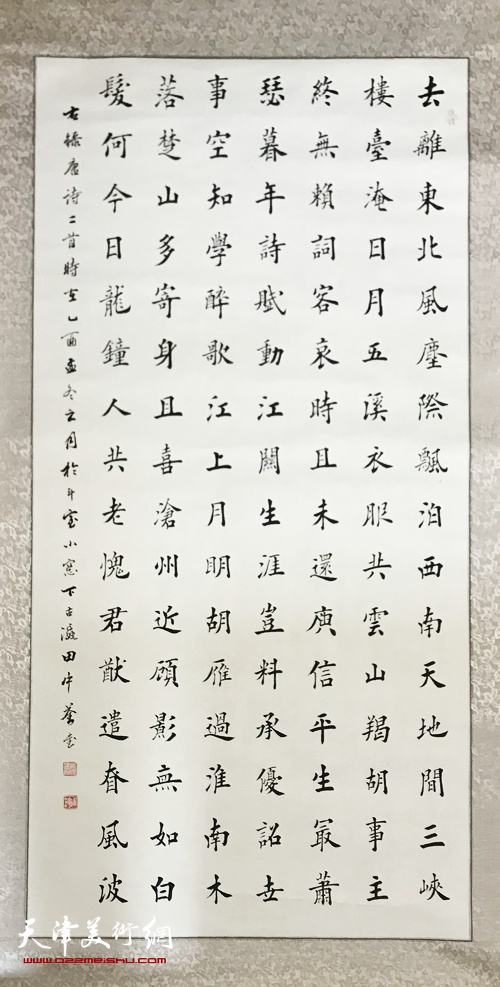 去離東北風塵際飄泊西南天地間三峽
樓臺淹日月五溪衣服共雲山羯胡事主
終無賴詞客哀時且未還庾信平生㝡蕭
瑟暮年詩賦動江關生涯豈料承優詔世
事空知學醉歌江上月明胡雁過淮南木
落楚山多寄身且喜滄州近顧影無如白
髮何今日龍鐘人共老愧君猷遣昚風波
右錄唐詩二首時在乙酉孟冬之月於斗室小窓下古瀛田中
天津美術網
www.022meishu.com